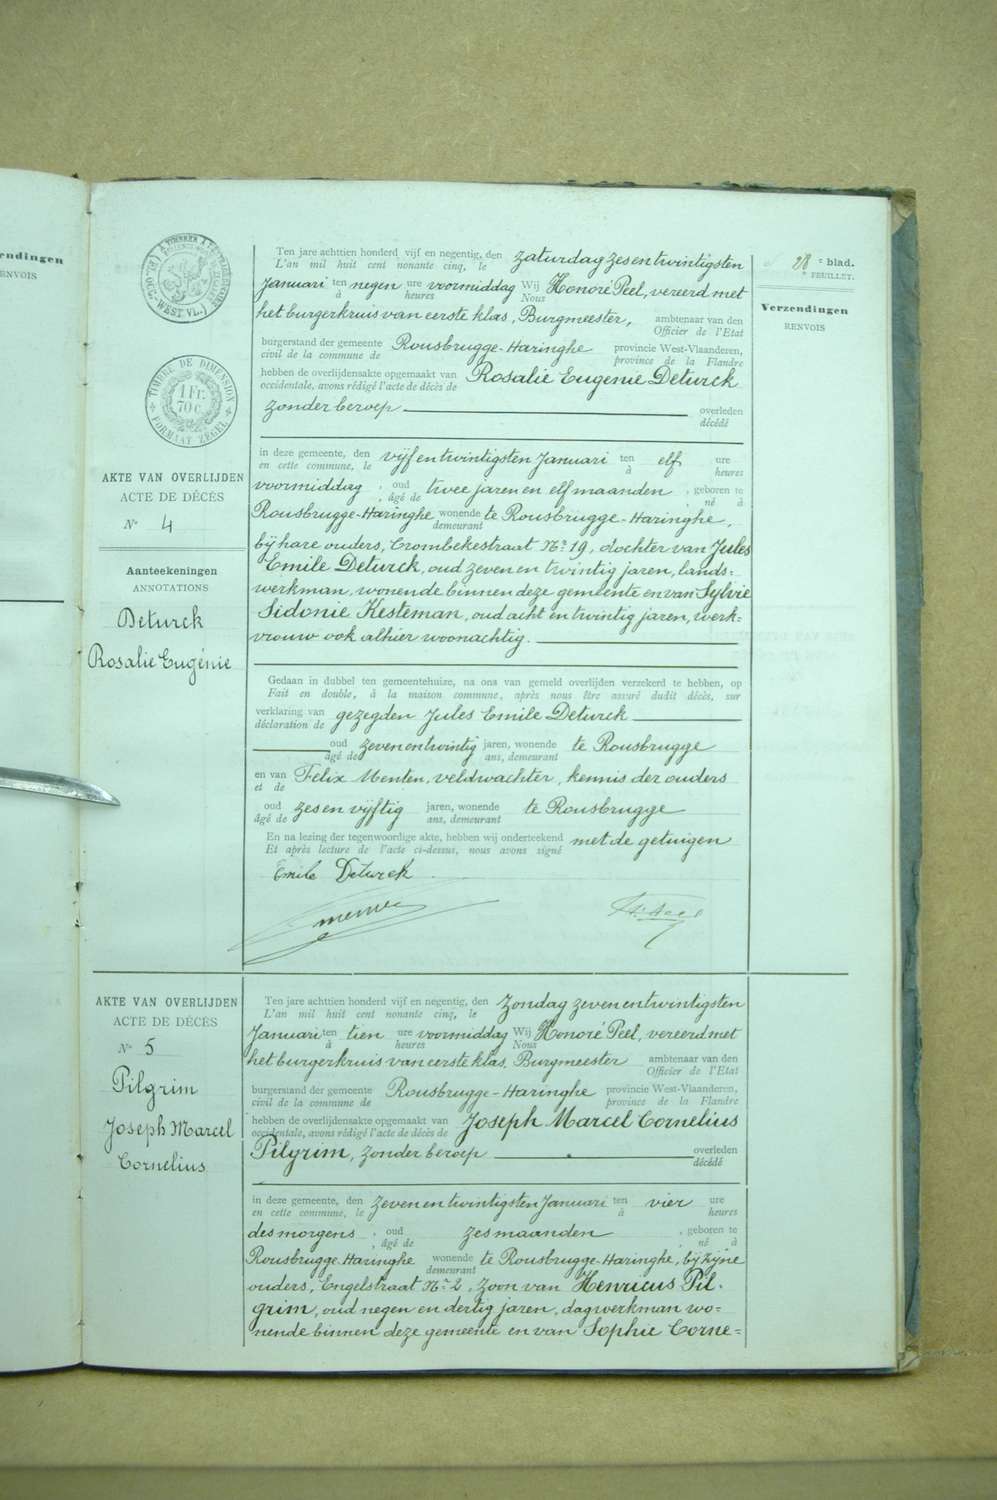 endingen
ENVOIS
28e blad.
e FEUILLET.
Verzendingen
RENVOIS
TIMBRE DE DIMENSION
1 Fr.
70 c.
FORMAAT ZEGEL
AKTE VAN OVERLIJDEN
ACTE DE DÉCÈS
N° 4
Aanteekeningen
ANNOTATIONS
Deturck
Rosalie Eugénie
Ten jare achttien honderd vijf en negentig, den zaturdag zesentwintigsten
L'an mil huit cent nonante cinq, le
Januari ten negen ure voormiddag Wij Honoré Peel, vereerd met
à heures Nous
het burgerkruis van eerste klas, Burgmeester, ambtenaar van den
Officier de l'Etat
burgerstand der gemeente Rousbrugge-Haringhe provincie West-Vlaanderen,
civil de la commune de province de la Flandre
hebben de overlijdensakte opgemaakt van Rosalie Eugenie Deturck
occidentale, avons rédigé l'acte de décès de
zonder beroep overleden
décédé
in deze gemeente, den vijfentwintigsten Januari ten elf ure
en cette commune, le à heures
voormiddag, oud twee jaren en elf maanden, geboren te
, âgé de , né à
Rousbrugge-Haringhe wonende te Rousbrugge-Haringhe,
demeurant
bij hare ouders, Crombekestraat No 19, dochter van Jules
Emile Deturck, oud zeven en twintig jaren, lands=
werkman, wonende binnen deze gemeente en van Sylvie
Sidonie Kesteman, oud acht en twintig jaren, werk=
vrouw ook alhier woonachtig.
Gedaan in dubbel ten gemeentehuize, na ons van gemeld overlijden verzekerd te hebben, op
Fait en double, à la maison commune, après nous être assuré dudit décès, sur
verklaring van gezegden Jules Emile Deturck
déclaration de
oud zevenentwintig jaren, wonende te Rousbrugge
âgé de ans, demeurant
en van Felix Menten, veldwachter, kennis der ouders
et de
oud zesenvijftig jaren, wonende te Rousbrugge
âgé de ans, demeurant
En na lezing der tegenwoordige akte, hebben wij onderteekend met de getuigen
Et après lecture de l'acte ci-dessus, nous avons signé
Emile Deturck
AKTE VAN OVERLIJDEN
ACTE DE DÉCÈS
N° 5
Pilgrim
Joseph Marcel
Cornelius
Ten jare achttien honderd vijf en negentig, den zondag zevenentwintigsten
L'an mil huit cent nonante cinq, le
Januari ten tien ure voormiddag Wij Honoré Peel, vereerd met
à heures Nous
het burgerkruis van eerste klas, Burgmeester ambtenaar van den
Officier de l'Etat
burgerstand der gemeente Rousbrugge-Haringhe provincie West-Vlaanderen,
civil de la commune de province de la Flandre
hebben de overlijdensakte opgemaakt van Joseph Marcel Cornelius
occidentale, avons rédigé l'acte de décès de
Pilgrim, zonder beroep overleden
décédé
in deze gemeente, den zevenentwintigsten Januari ten vier ure
en cette commune, le à heures
des morgens, oud zes maanden, geboren te
, âgé de , né à
Rousbrugge-Haringhe wonende te Rousbrugge-Haringhe, bij zijne
demeurant
ouders, Engelstraat No 2, zoon van Henricus Pil-
grim, oud negen en dertig jaren, dagwerkman wo=
nende binnen deze gemeente en van Sophie Corne=